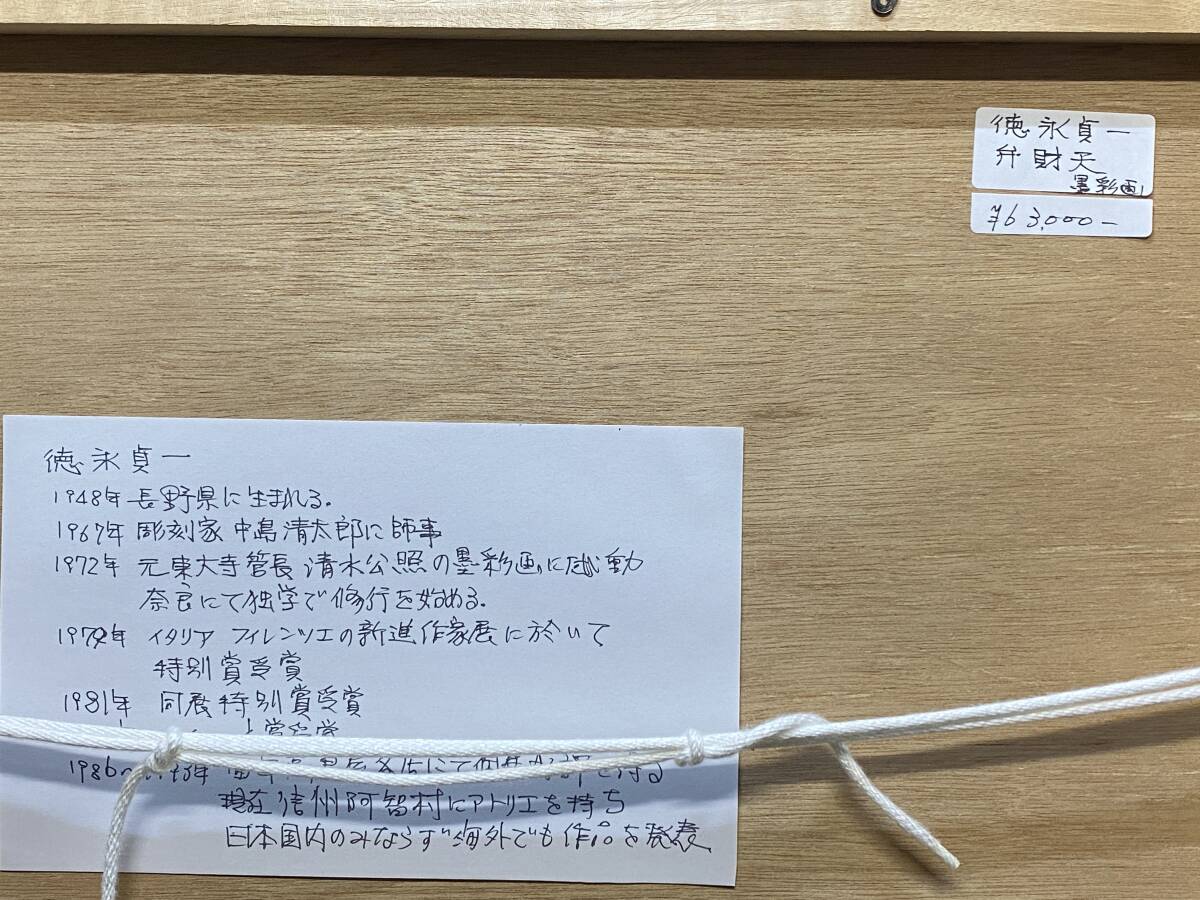 徳永貞一
弁財天
墨彩画
¥63,000-
徳永貞一
1948年 長野県に生まれる.
1967年 彫刻家 中島清太郎に師事
1972年 元東大寺管長 清水公照の墨彩画に感動
奈良にて独学で修行を始める.
イタリア フィレンツェの新進作家展に於いて
特別賞受賞
1981年 同展特別賞受賞
現在信州阿智村にアトリエを持ち
日本国内のみならず海外でも作品を発表